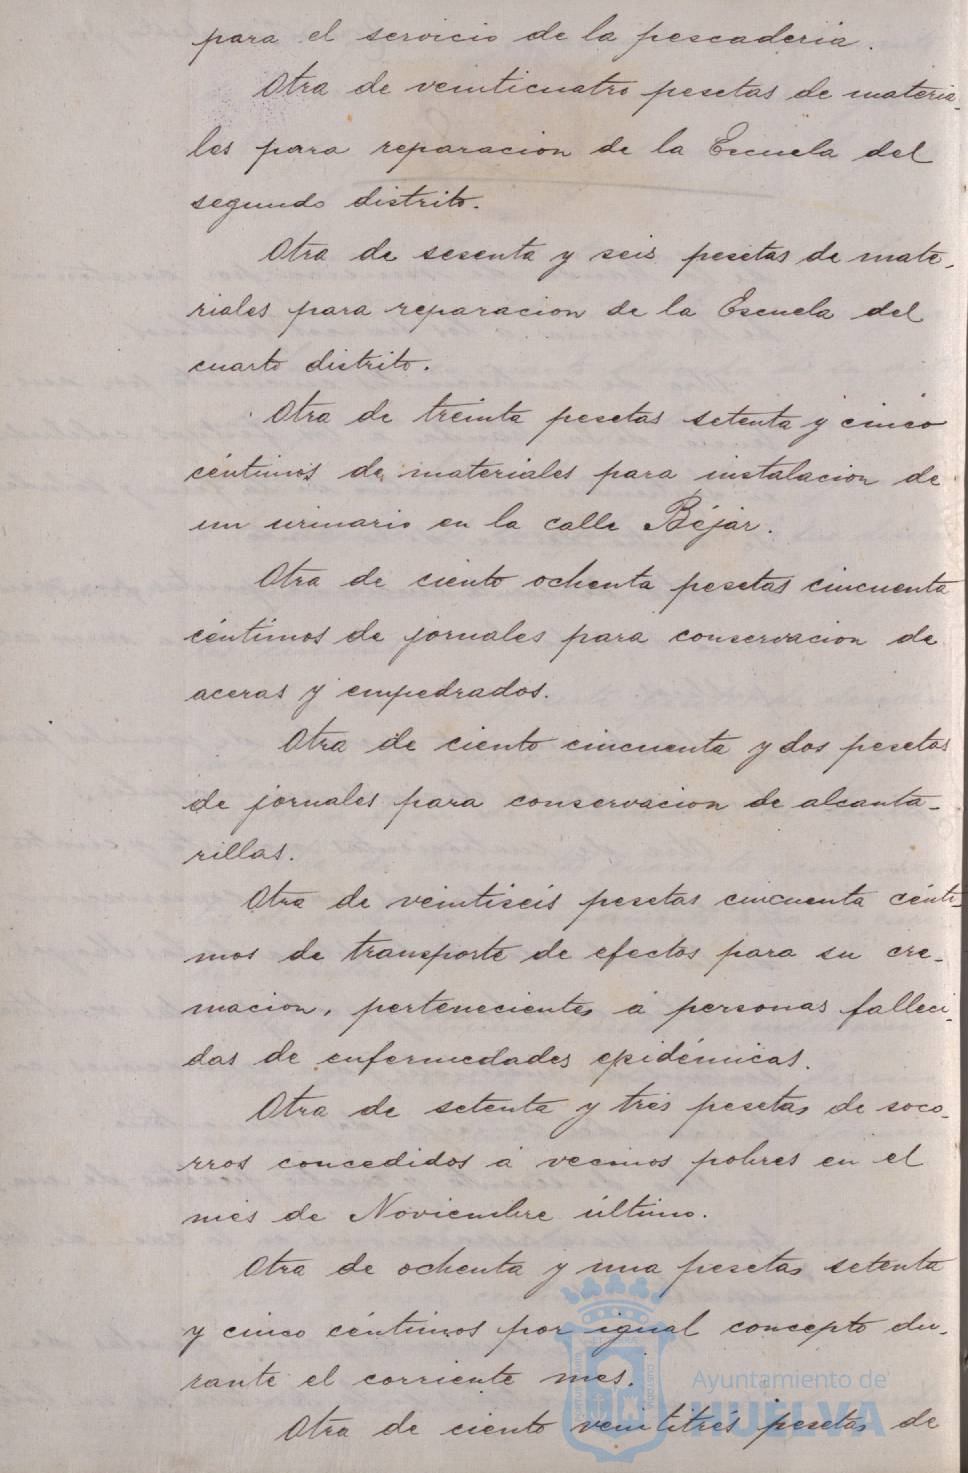 para el servicio de la pescaderia.
Otra de veinticuatro pesetas de materia-
les para reparacion de la Escuela del
segundo distrito.
Otra de sesenta y seis pesetas de mate-
riales para reparacion de la Escuela del
cuarto distrito.
Otra de treinta pesetas setenta y cinco
céntimos de materiales para instalacion de
un urinario en la calle Béjar.
Otra de ciento ochenta pesetas cincuenta
céntimos de jornales para conservacion de
aceras y empedrados.
Otra de ciento cincuenta y dos pesetas
de jornales para conservacion de alcanta-
rillas.
Otra de veintiseis pesetas cincuenta cénti-
mos de transporte de efectos para su cre-
macion, pertenecientes á personas falleci-
das de enfermedades epidémicas.
Otra de setenta y tres pesetas de soco-
rros concedidos á vecinos pobres en el
mes de Noviembre último.
Otra de ochenta y una pesetas setenta
y cinco céntimos por igual concepto du-
rante el corriente mes.
Otra de ciento veintitrés pesetas de
Ayuntamiento de
HUELVA